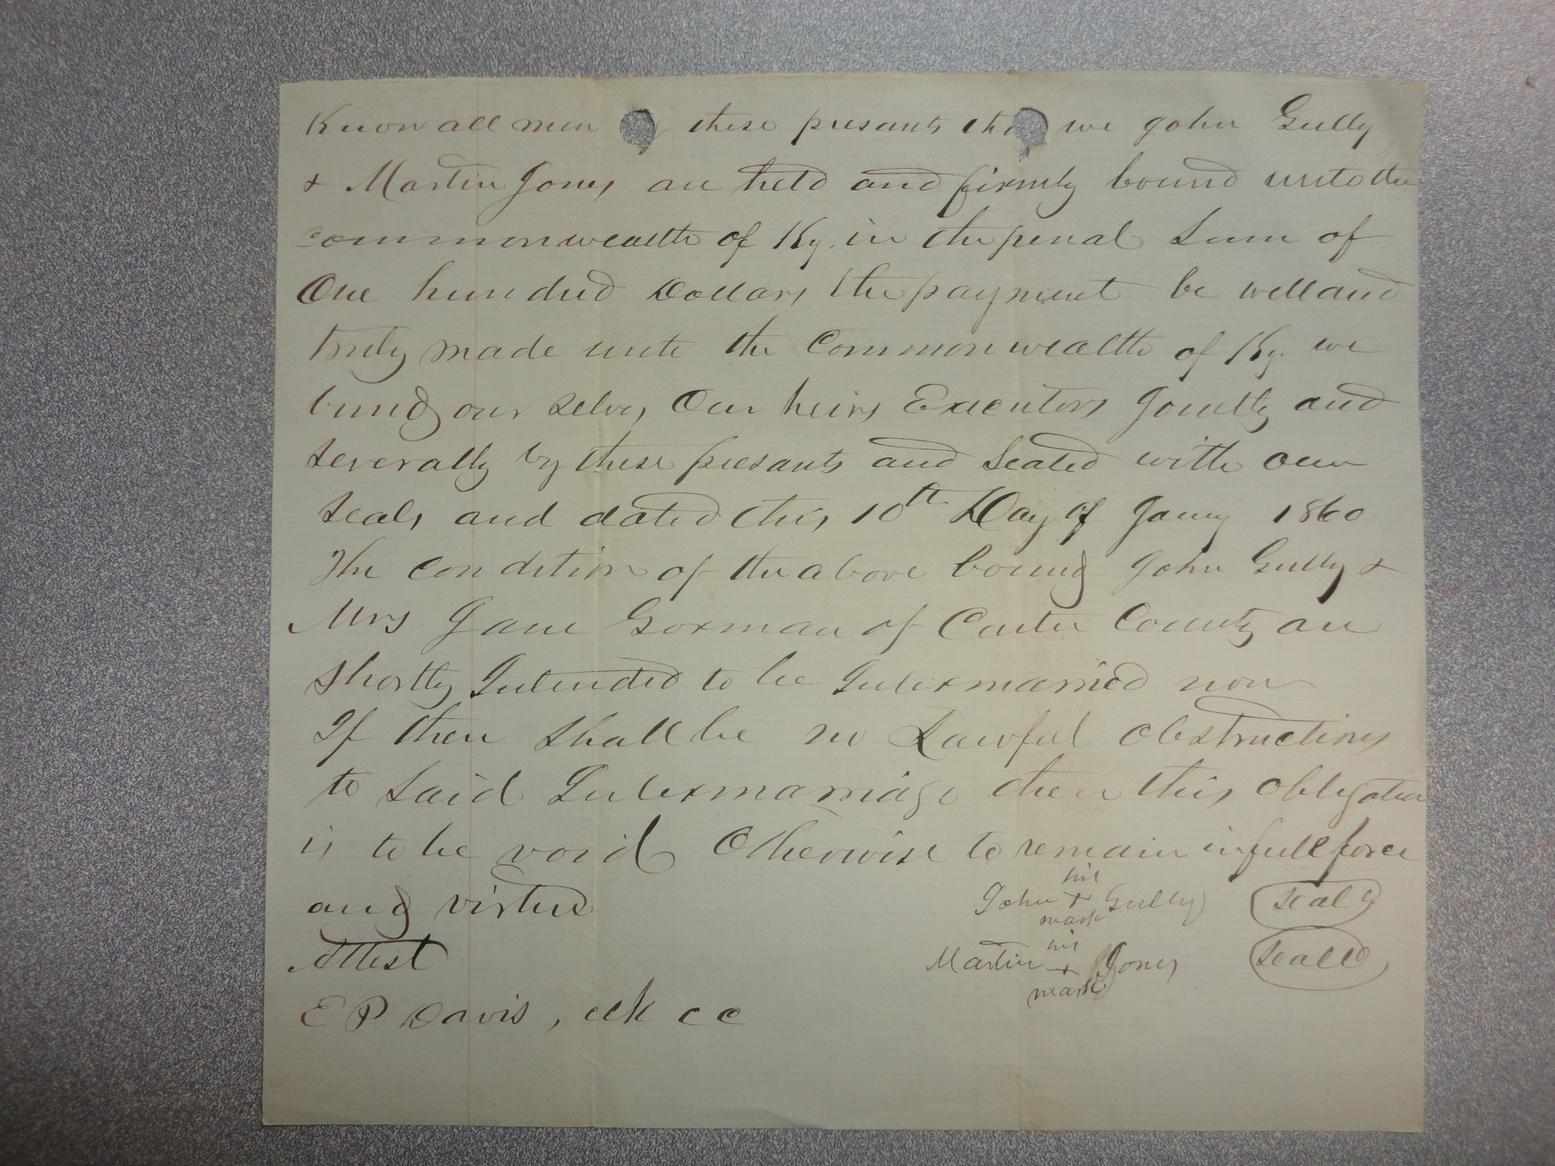 Know all men these presants tha we John Gully
& Martin Jones are held and firmly bound unto the
commonwealth of Ky. in the penal Sum of
One hundred Dollars the payment be well and
truly made unto the Commonwealth of Ky. we
bind our selves Our heirs Executors Jointly and
Severally by these presants and Sealed with our
Seals and dated this 10th Day of Jany 1860
The condition of the above bound John Gully &
Mrs Jane Gorman of Carter County are
shortly Intended to be Intermarried now
If there Shall be no Lawful obstructions
to Said Intermarriage then this obligation
is to be void Otherwise to remain in full force
and virtue
his
John + Gully Seal
mark
Attest
his
Martin + Jones Seald
mark
E P Davis, clk c c